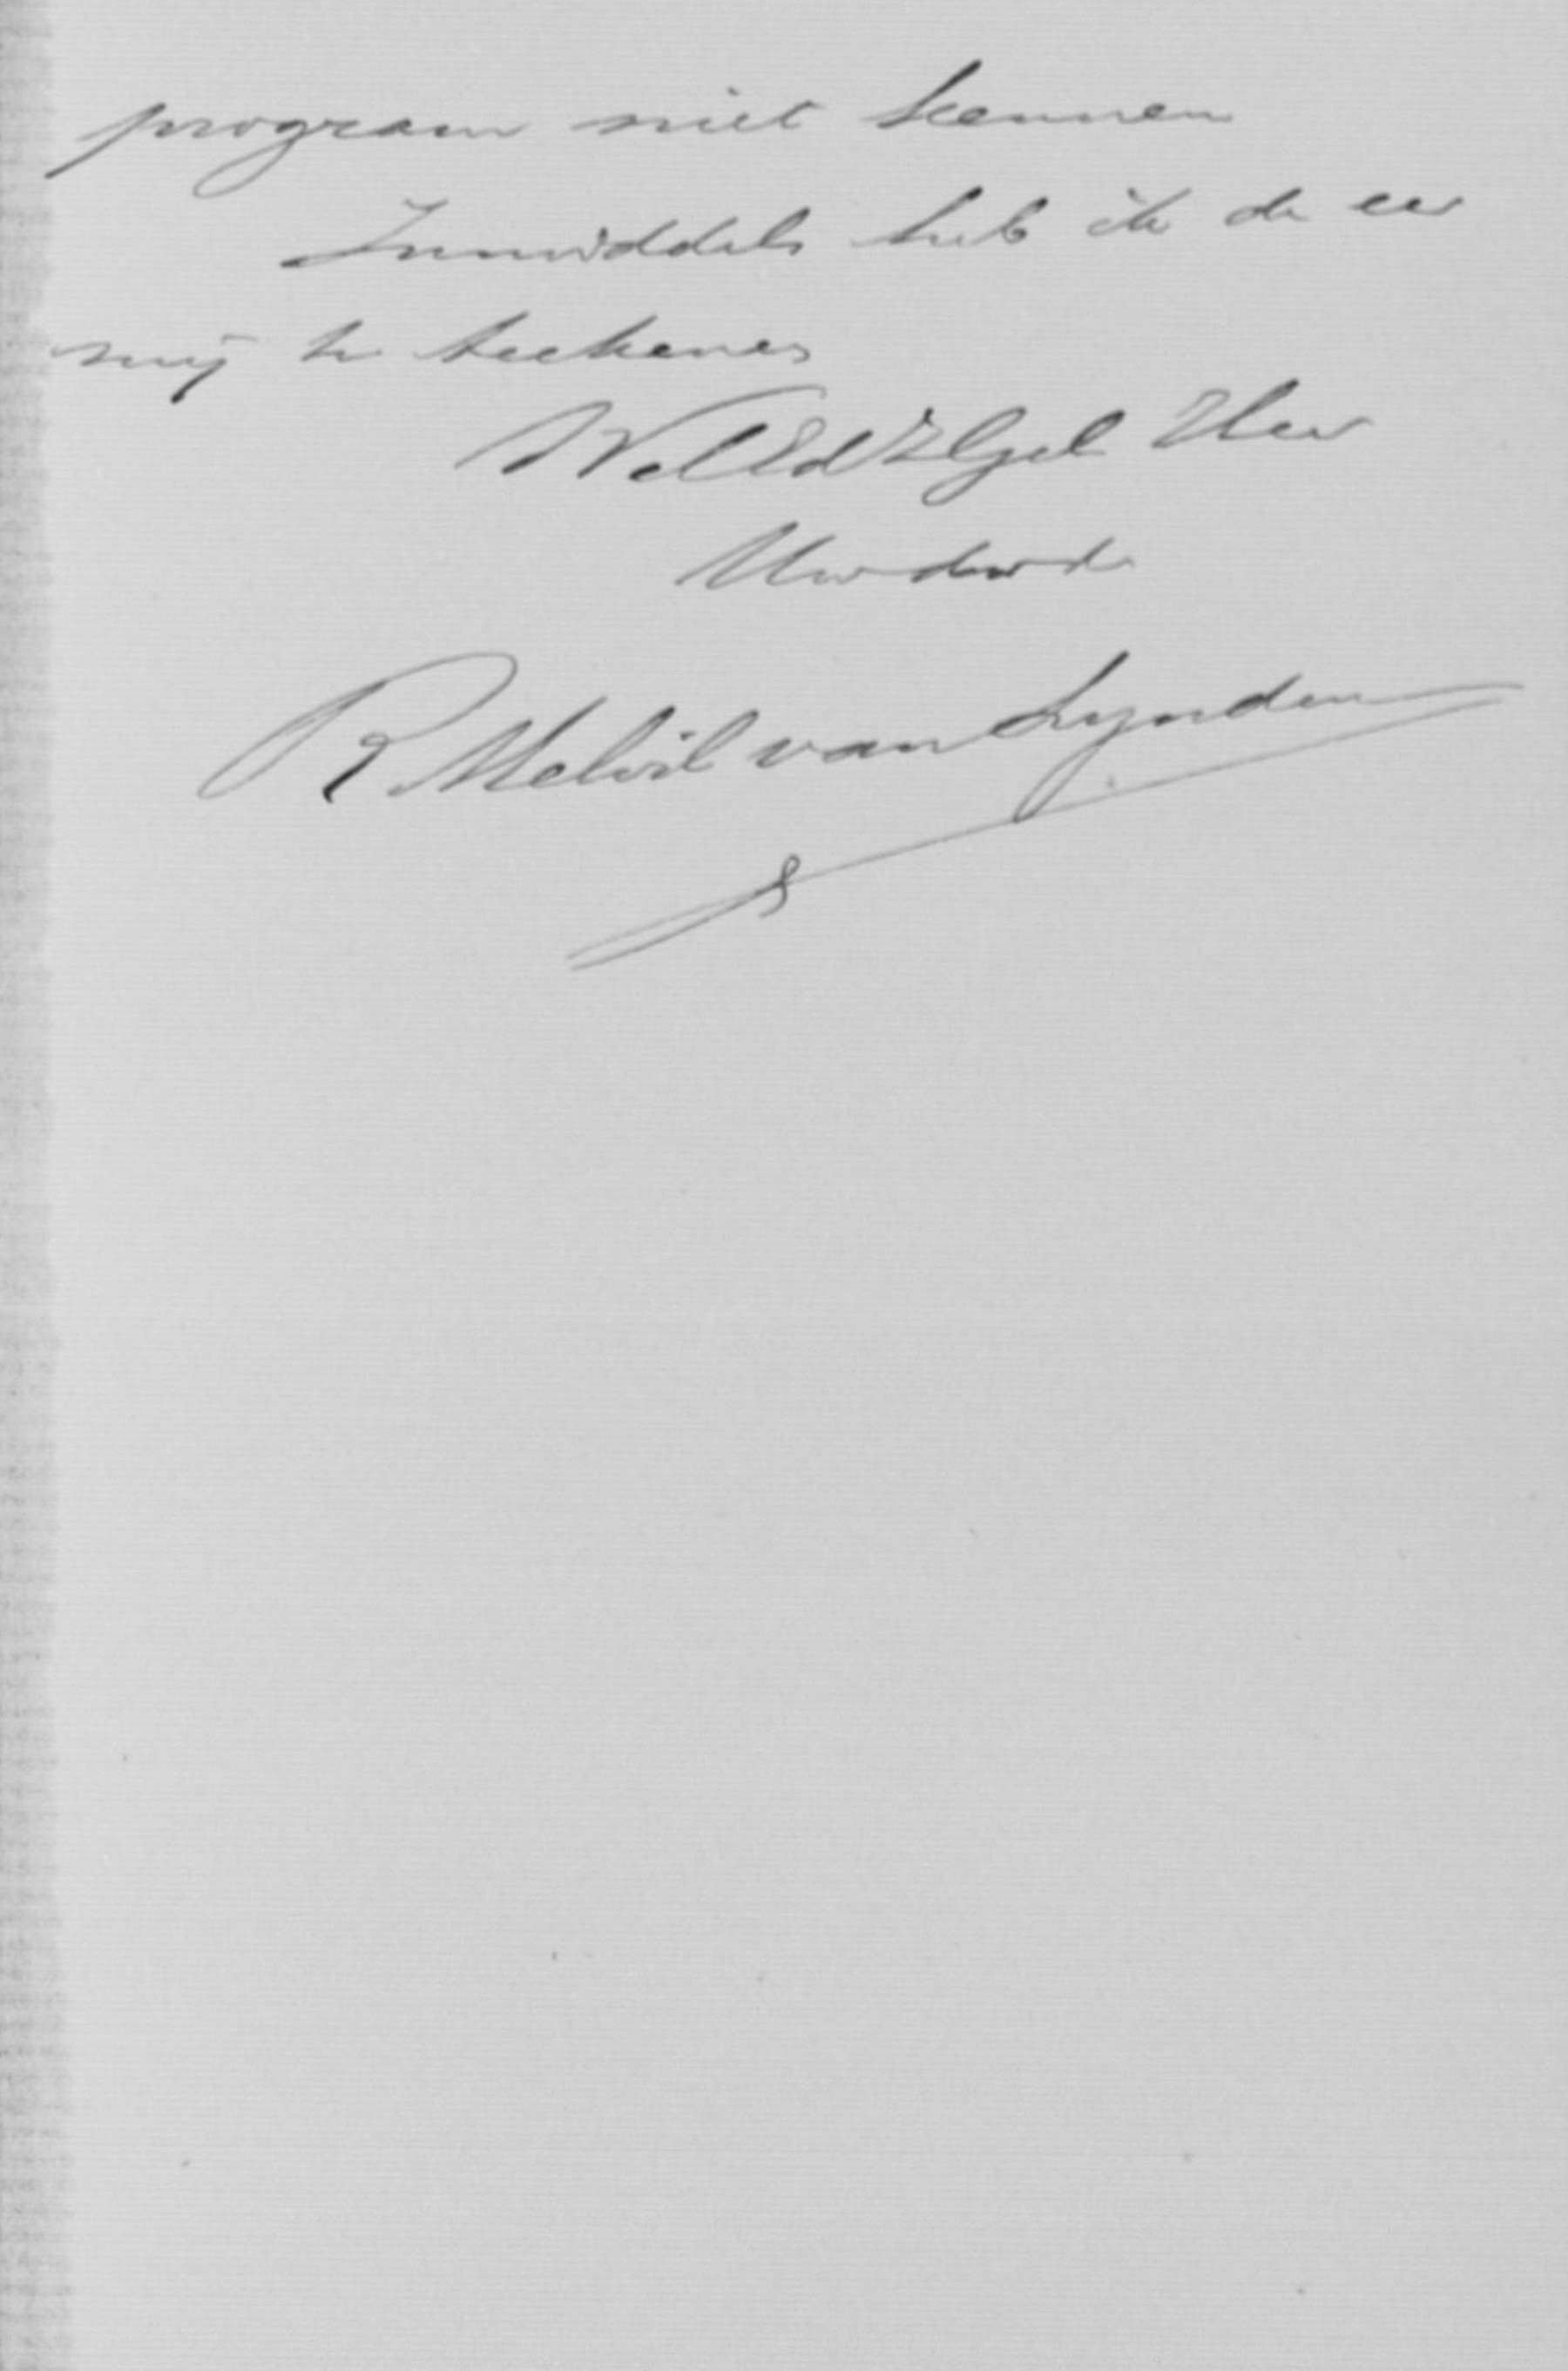 program niet kennen
Inmiddels heb ik de eer
mij te teekenen
WelEdZGel Heer
Uwdwd
R Melvil van Lynden